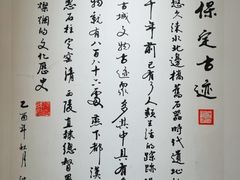 保定古迹
悠久涞水北边桥旧石器时代遗址
千年前已有了人类生活的踪迹
古城文物古迹众多其中具有
物就有八百八十二处燕下都汉
志石柱定窑清西陵直隶总督
灿烂的文化历史
乙酉年